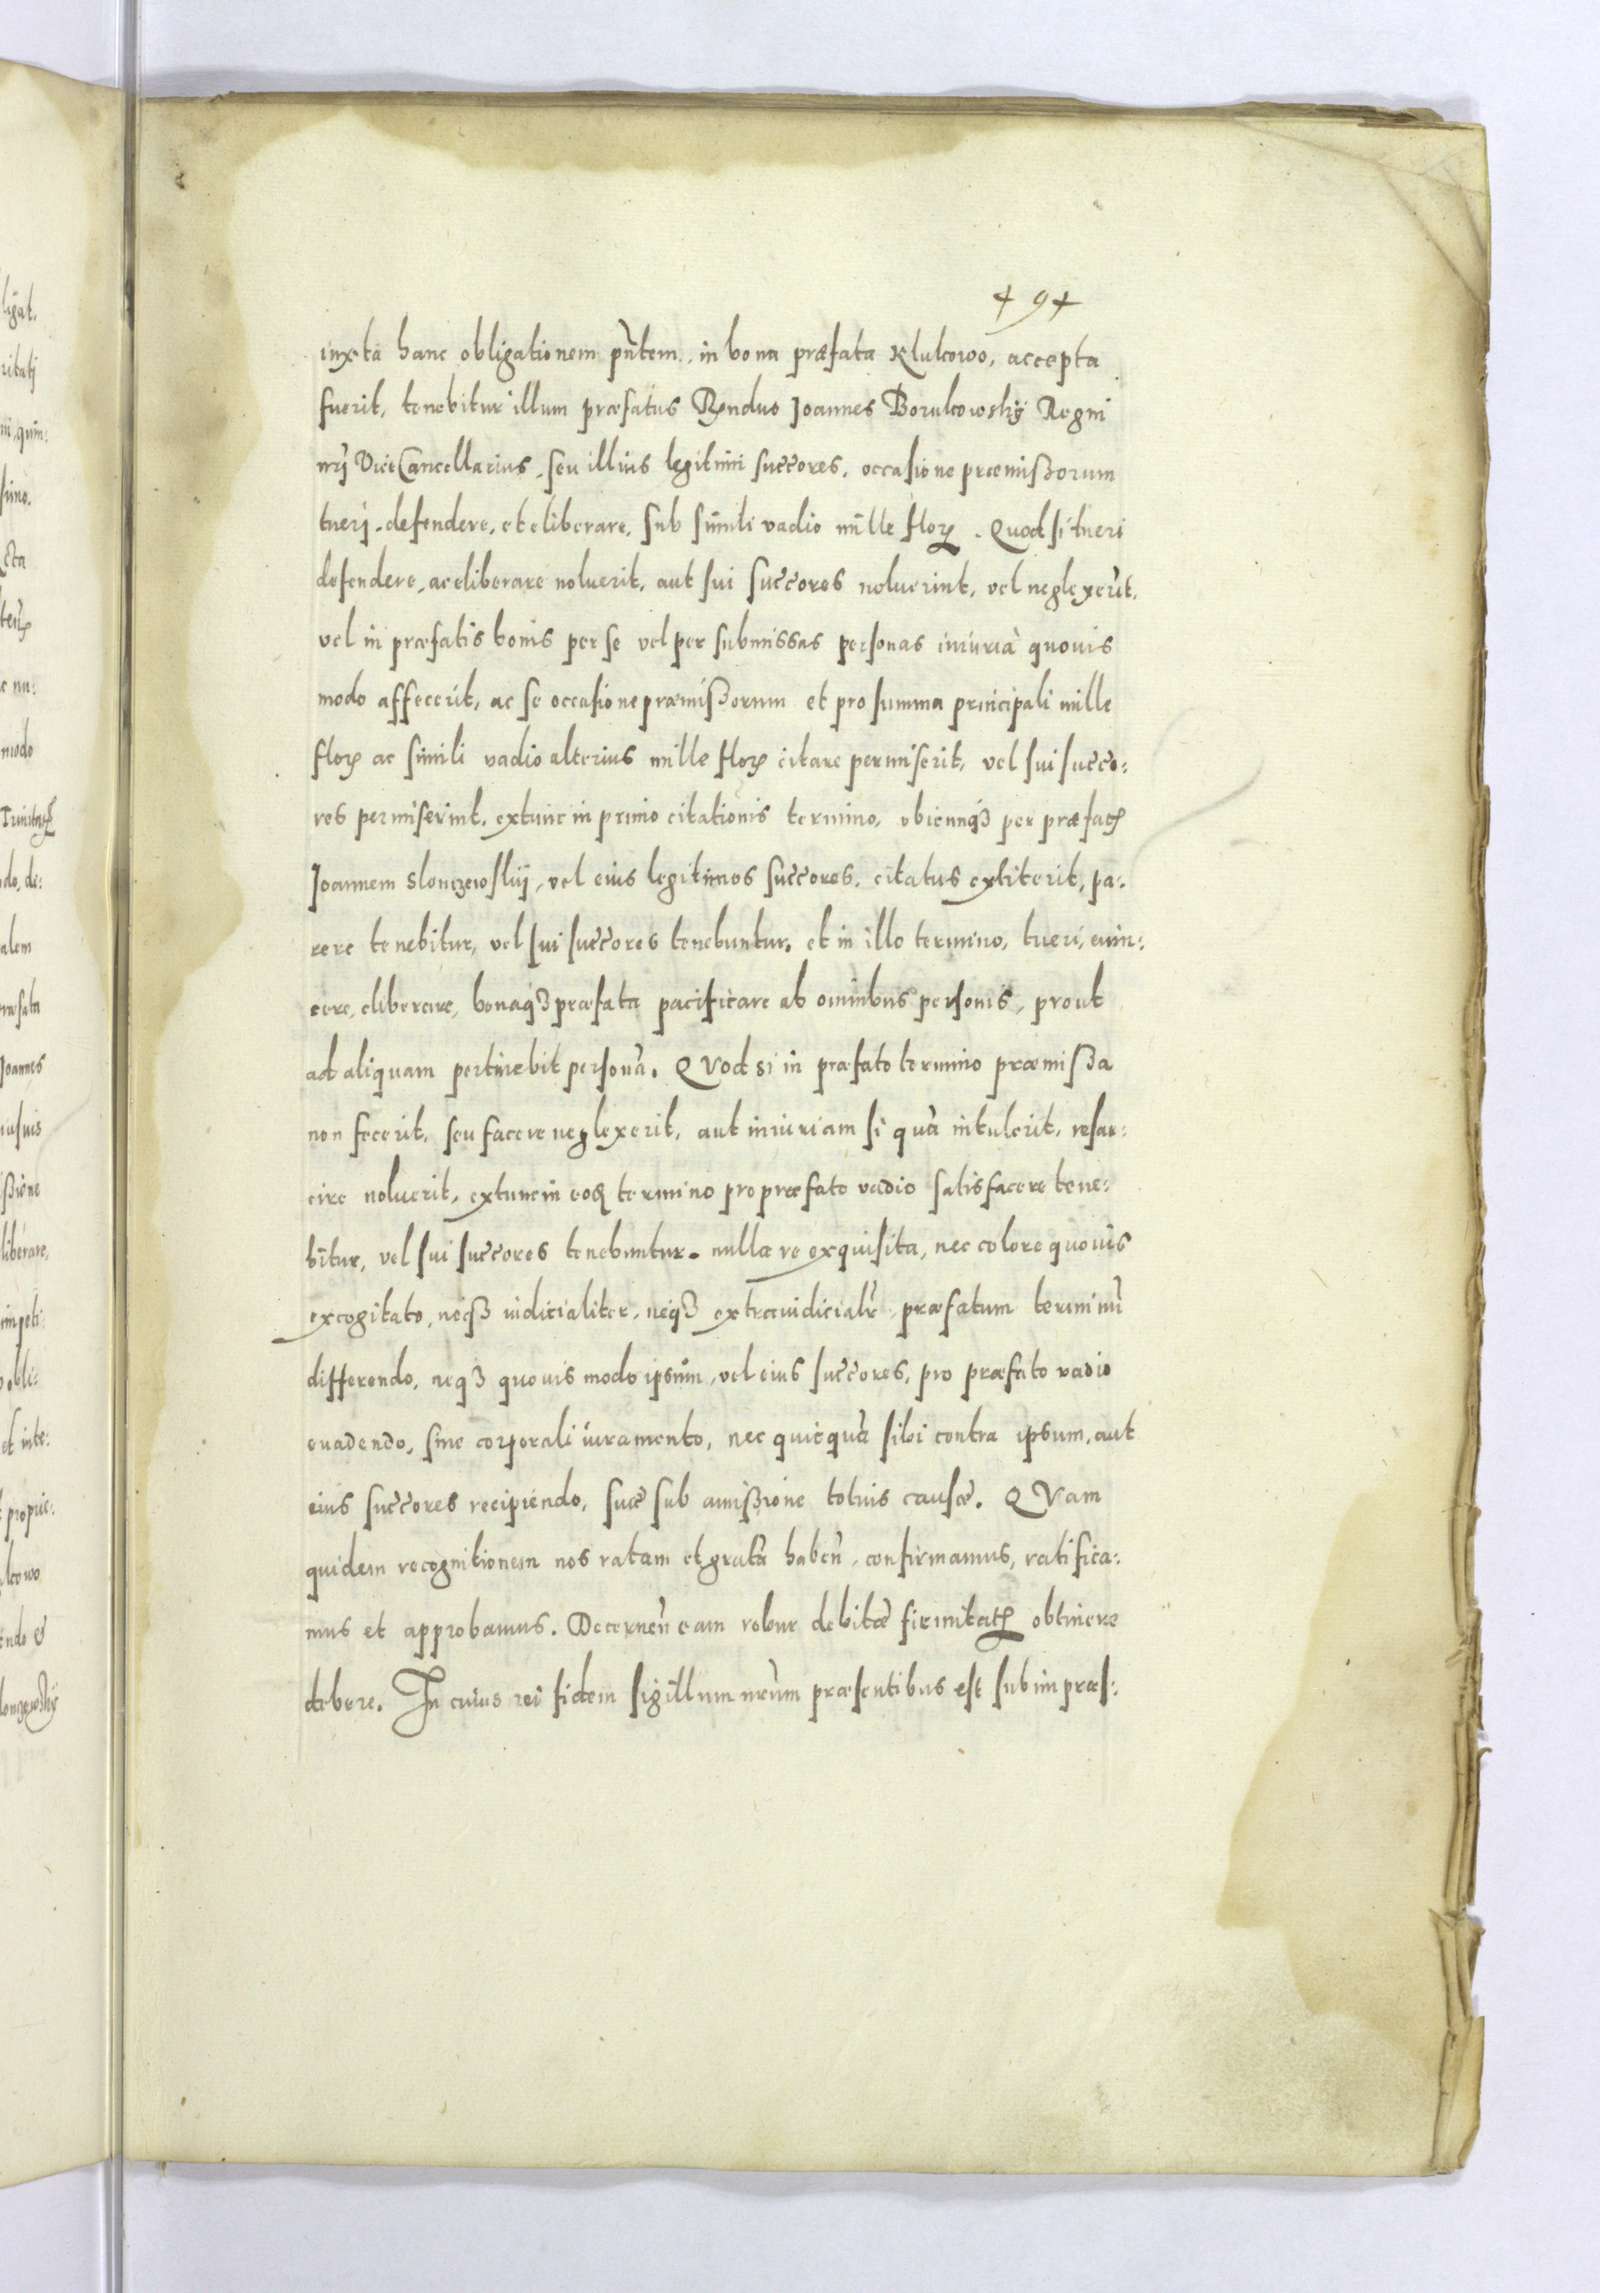 + 9 +
iuxta hanc obligationem pntem, in bona præfata Klukowo, accepta
fuerit, tenebitur illum præfatus Rndus Joannes Borukowskÿ Regni
nrj ViceCancellarius, seu illius legitimi succores, occasione præmißorum
tueri, defendere, et eliberare, sub simili vadio mille flor. Quod si tueri
defendere, ac eliberare noluerit, aut sui succores noluerint, vel neglexerit,
vel in præfatis bonis per se vel per submissas personas iniuriā quouis
modo affecerit, ac se occasione præmißorum et pro summa principali mille
flor ac simili vadio alterius mille flor citare permiserit, vel sui succo:
res permiserint, extunc in primo citationis termino, vbicunq3 per præfat
Joannem Slonczewskij, vel eius legitimos succores, citatus extiterit, pa:
rere tenebitur, vel sui succores tenebuntur, et in illo termino, tueri, euin:
cere, eliberare, bonaq3 præfata pacificare ab omnibus personis, prout
ad aliquam pertinebit personā. QVod si in præfato termino præmißa
non fecerit, seu facere neglexerit, aut iniuriam si quā intulerit, resar:
cire noluerit, extunc in eod termino pro præfato vadio satisfacere tene:
bitur, vel sui succores tenebuntur. nulla re exquisita, nec colore quouis
excogitato, neq3 iudicialiter, neq3 extraiudicialr præfatum terminū
differendo, neq3 quouis modo ipsum, vel eius succores, pro præfato vadio
euadendo, sine corporali iuramento, nec quicquā sibi contra ipsum, aut
eius succores recipiendo, suæ sub amißione totius causæ. QVam
quidem recognitionem nos ratam et gratā haben, confirmamus, ratifica:
mus et approbamus. Decernen eam robur debitæ firmitat obtinere
debere. In cuius rei fidem sigillum nrum præsentibus est subimpræs: